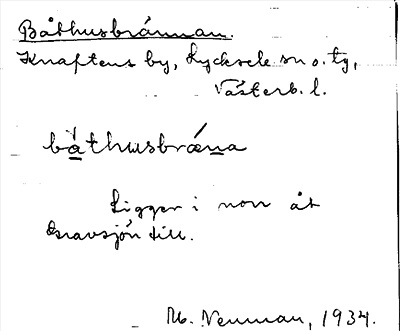 Båthusbrännan.
Knaftens by, Lycksele sn o. tg,
Västerb. l.
båthusbræna
Ligger i norr åt
till.
M. Neuman, 1934.